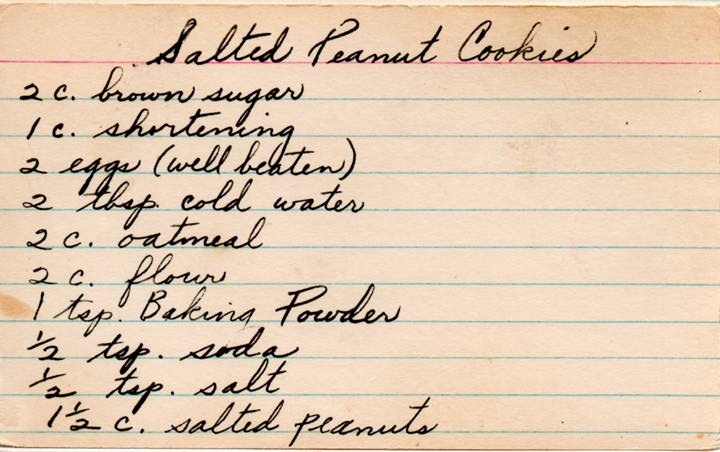 Salted Peanut Cookies
2 c. brown sugar
1 c. shortening
2 eggs (well beaten)
2 tbsp. cold water
2 c. oatmeal
2 c. flour
1 tsp. Baking Powder
1/2 tsp. soda
1/2 tsp. salt
1 1/2 c. salted peanuts